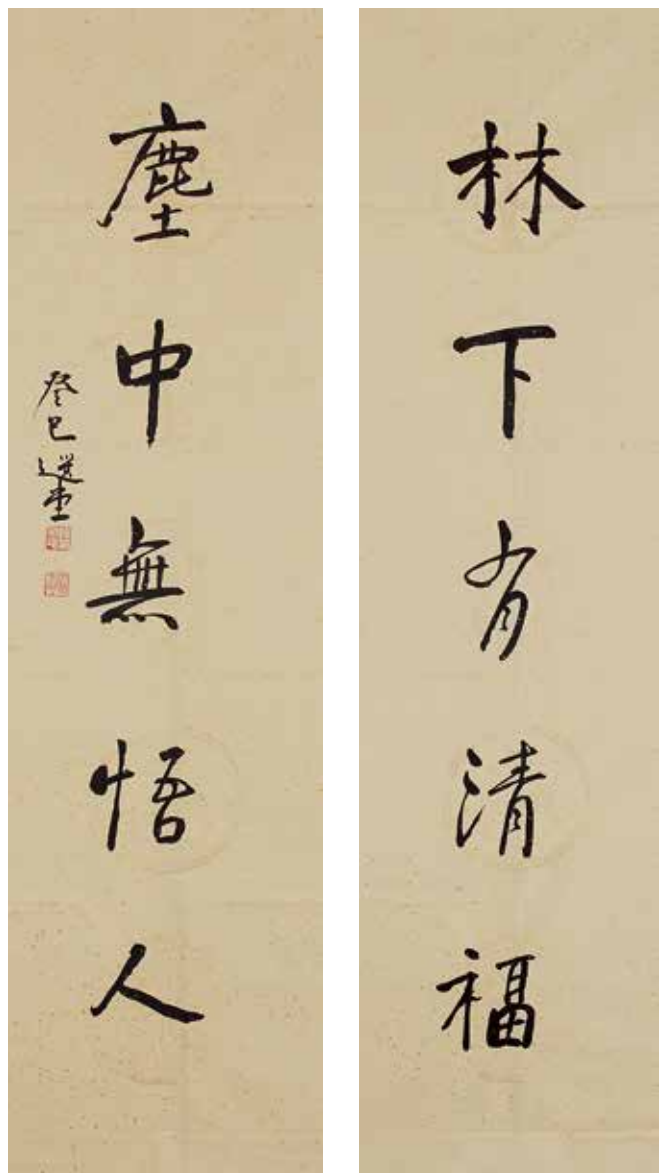 林下有清福
塵中無悟人
癸巳選堂